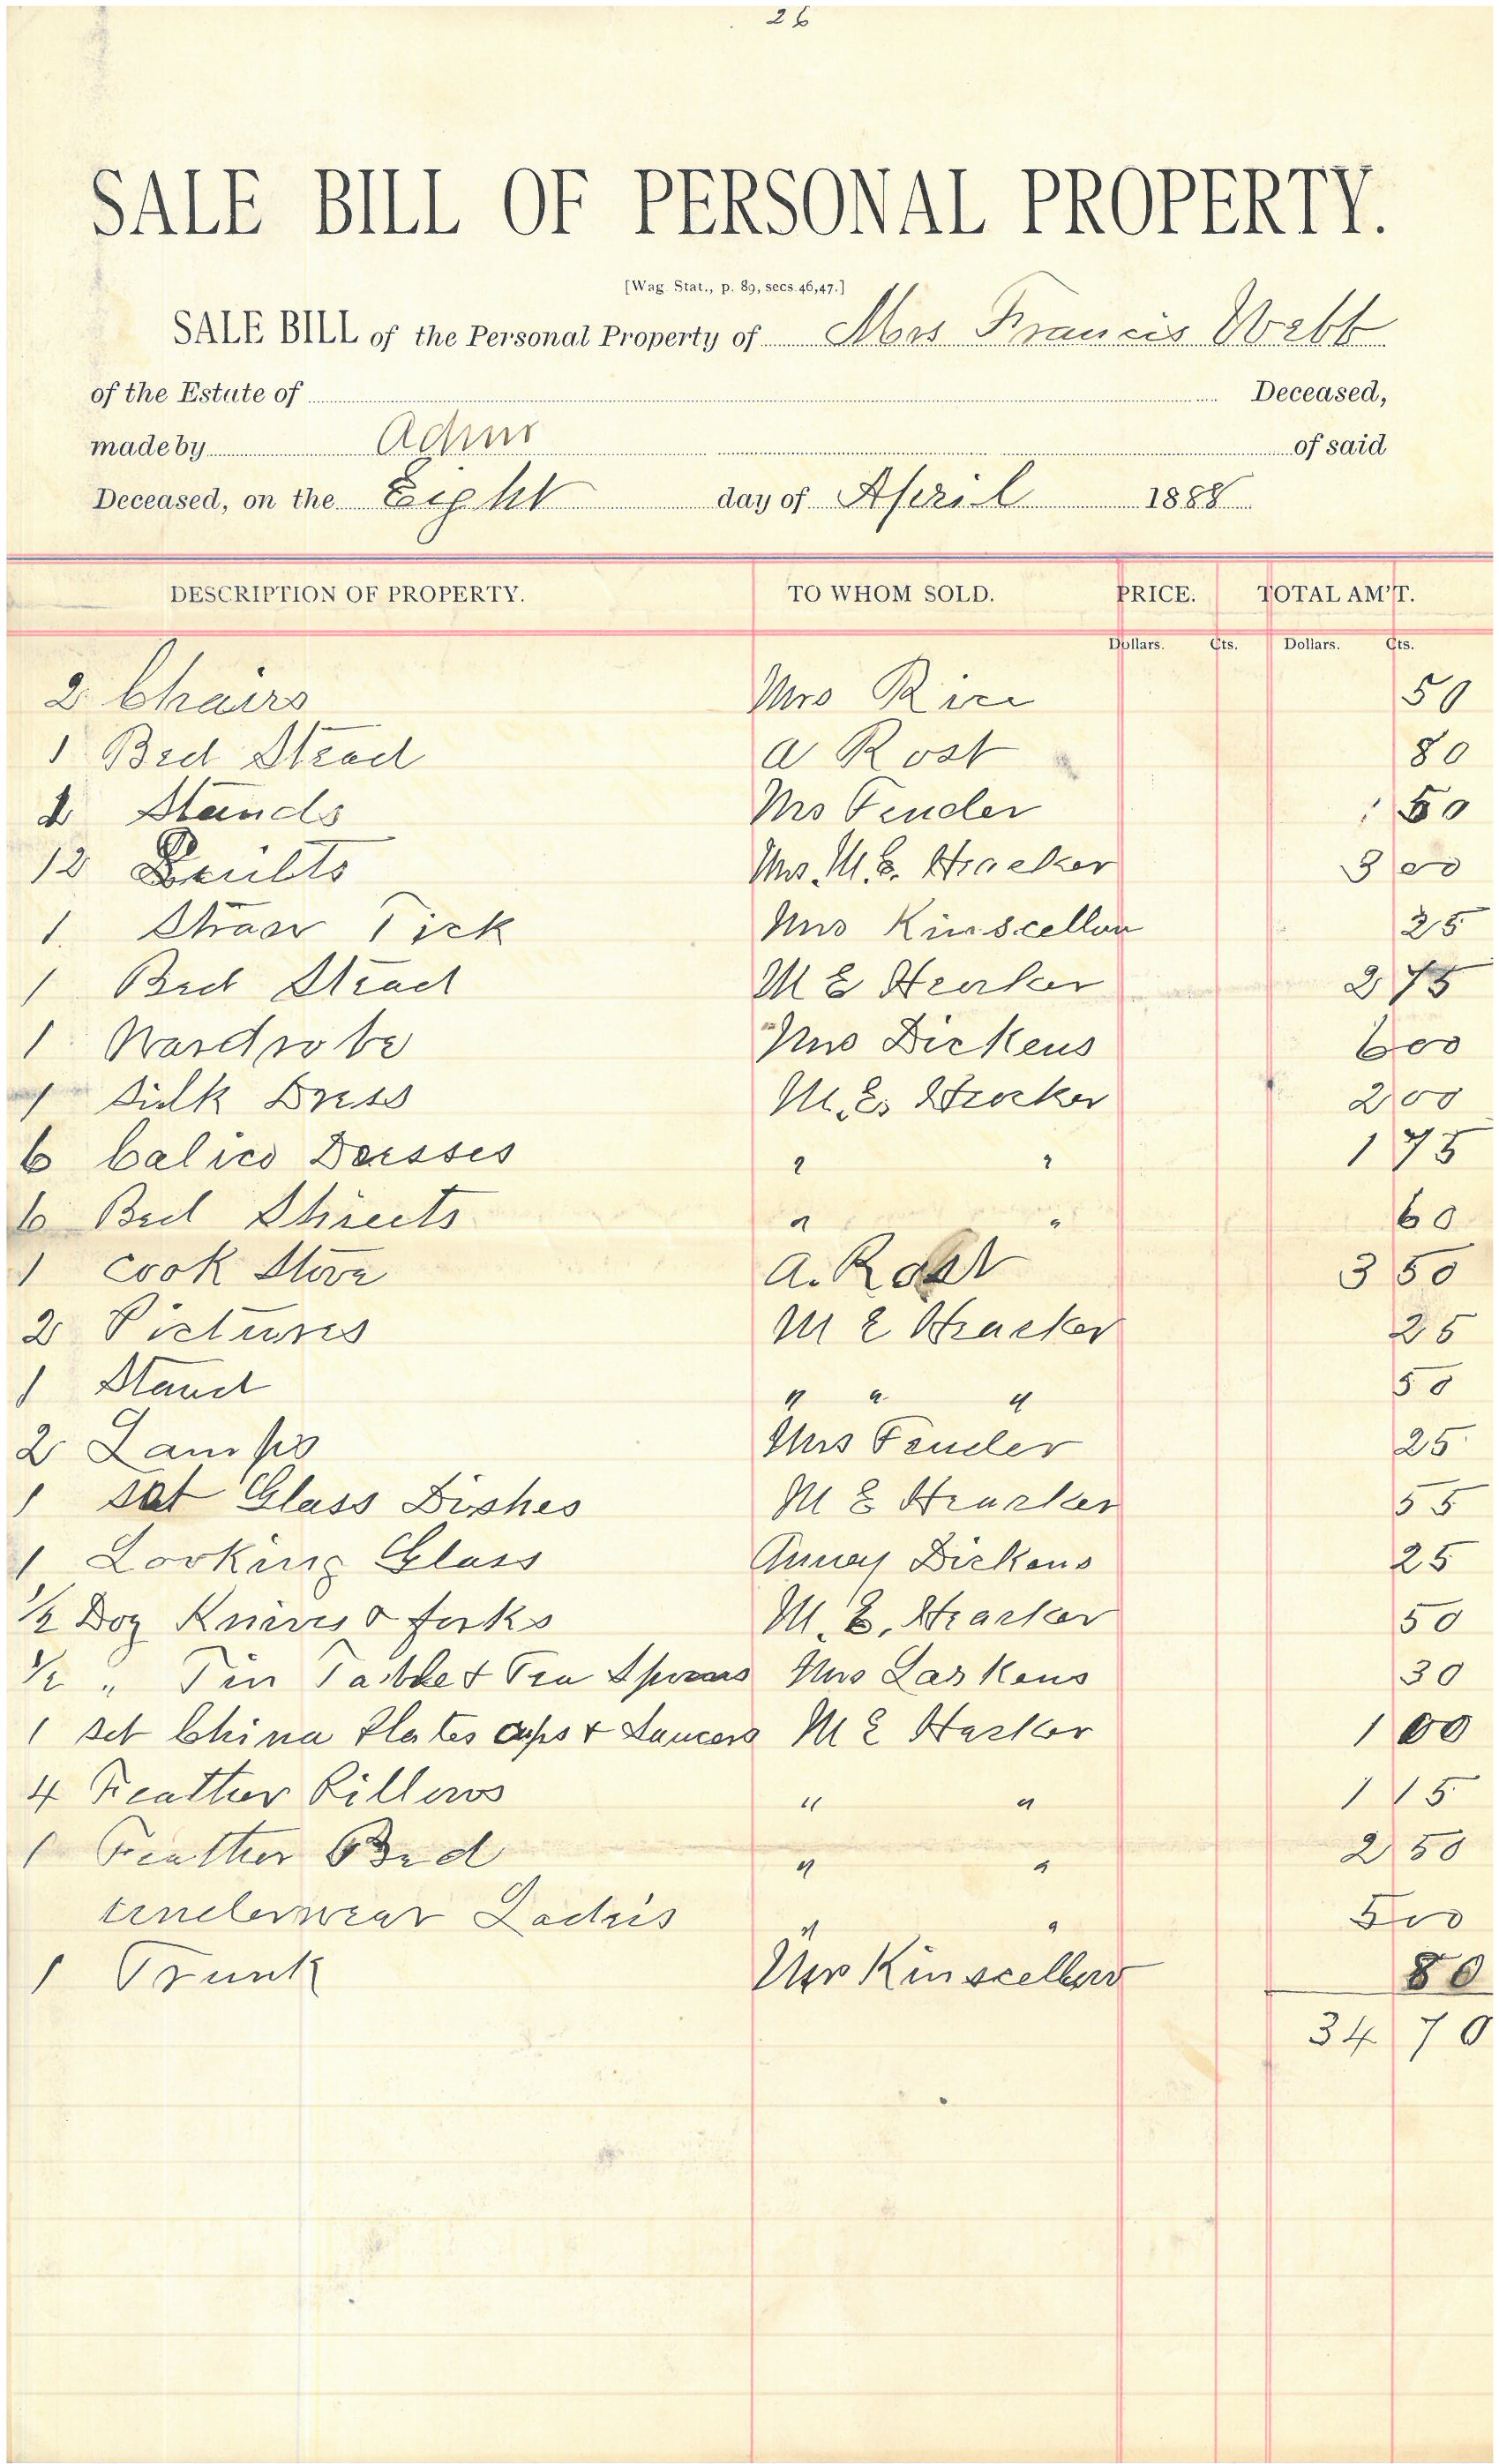 26
SALE BILL OF PERSONAL PROPERTY.
[Wag. Stat., p. 89, secs. 46, 47.]
SALE BILL of the Personal Property of Mrs Francis Webb
of the Estate of Deceased,
made by Admr of said
Deceased, on the Eight day of April 1888
DESCRIPTION OF PROPERTY. TO WHOM SOLD. PRICE. TOTAL AM'T.
Dollars. Cts. Dollars. Cts.
2 Chairs Mrs Rice 50
1 Bed Stead A Rost 80
Stands Mrs Fender 50
12 Quilts Mrs. M. E. Hracker 3 00
1. Straw Tick Mrs Kinscellow 25
1 Bed Stead M E Hracker 2 75
1 Wardrobe Mrs Dickens 6 00
1 Silk Dress M. E. Hracker 2 00
6 Calico Dresses " " 1 75
6 Bed Sheets " " 60
1 Cook Stove A. Rost 3 50
2 Pictures M E Hracker 25
1 Stand " " " 50
2 Lamps Mrs Fender 25
1 set Glass Dishes M E Hracker 55
1 Looking Glass Dickens 25
1/2 Doz Knives & forks M. E. Hracker 50
1/2 " Tin Table & Tea Spoons Mrs Larkens 30
1 set China Plates cups & Saucers M E Harker 1 00
4 Feather Pillows " " 1 15
1 Feather Bed " " 2 50
underwear Ladies " " 5 00
1 Trunk Mrs Kinscellow 80
34 70